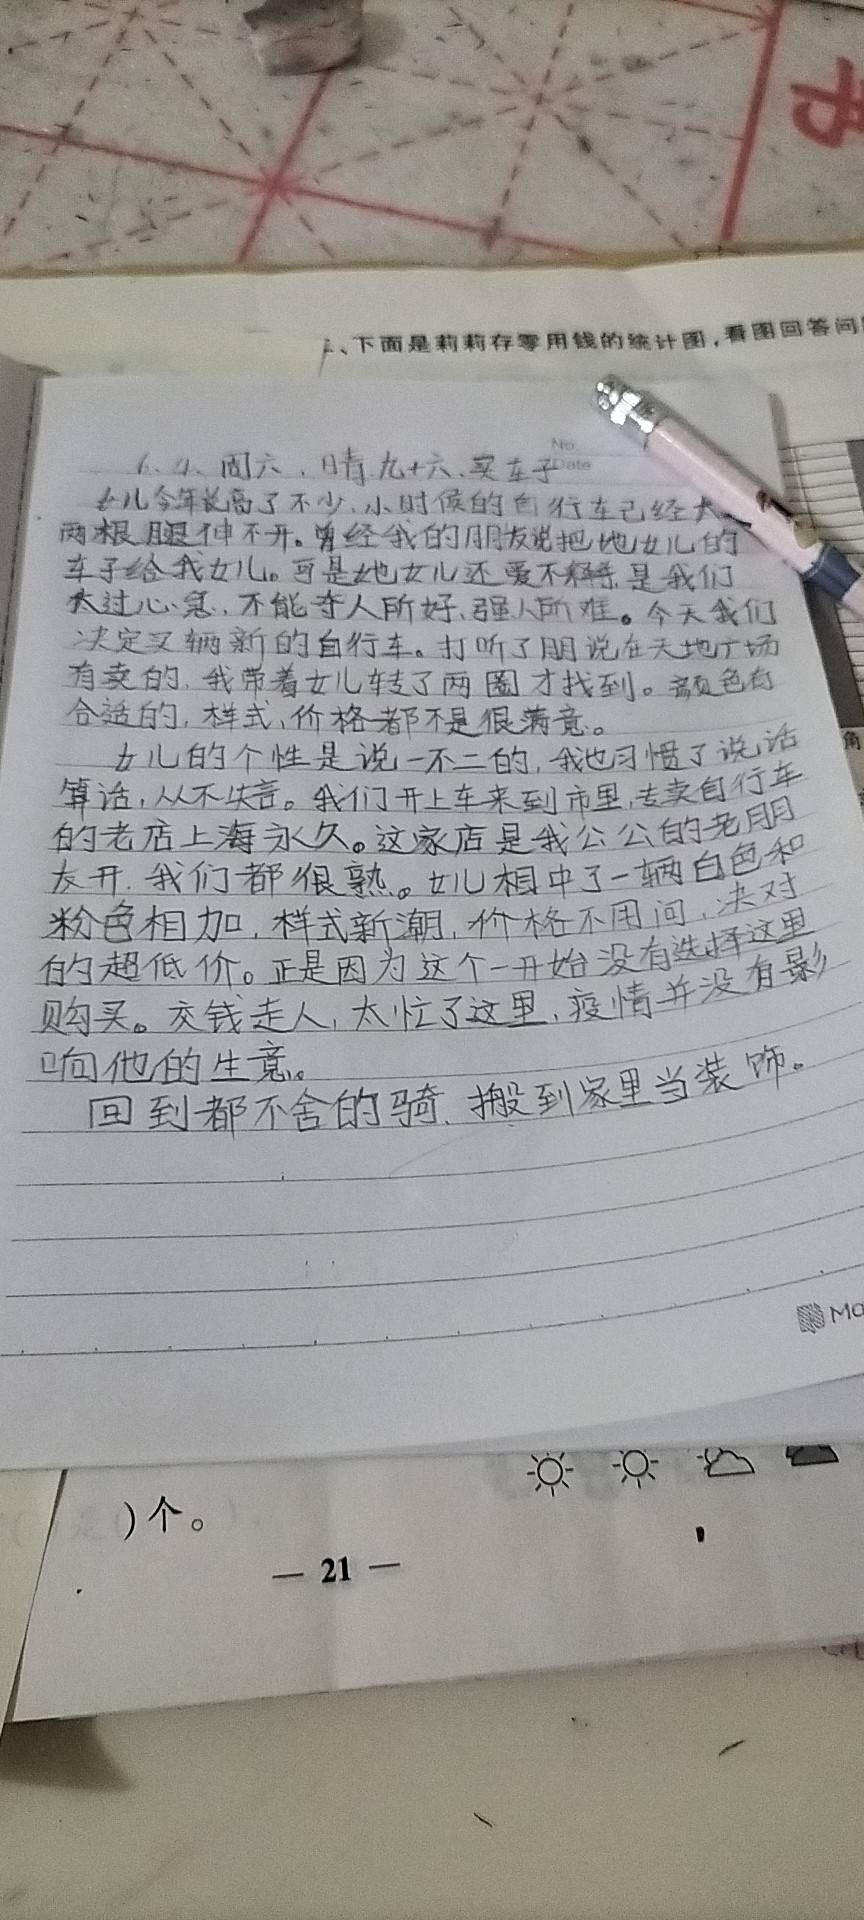 二、下面是莉莉存零用钱的统计图,看图回答问
No.
Date
6.4、周六.晴.九十六.买车子
女儿今年长高了不少.小时候的自行车已经太
两根腿伸不开。曾经我的朋友说把她女儿的
车子给我女儿。可是她女儿还爱不释手.是我们
太过心急.不能夺人所好、强人所难。今天我们
决定买辆新的自行车。打听了朋说在天地广场
有卖的.我带着女儿转了两圈才找到。颜色有
合适的,样式、价格都不是很满意。
女儿的个性是说一不二的,我也习惯了说话
算话,从不失言。我们开上车来到市里,专卖自行车
的老店上海永久。这家店是我公公的老朋
友开.我们都很熟。女儿相中了一辆白色和
粉色相加,样式新潮,价格不用问.决对
的超低价。正是因为这个一开始没有选择这里
购买。交钱走人,太忙了这里,疫情并没有影
响他的生意。
回到都不舍的骑.搬到家里当装饰。
MO
角
)个。
— 21 —